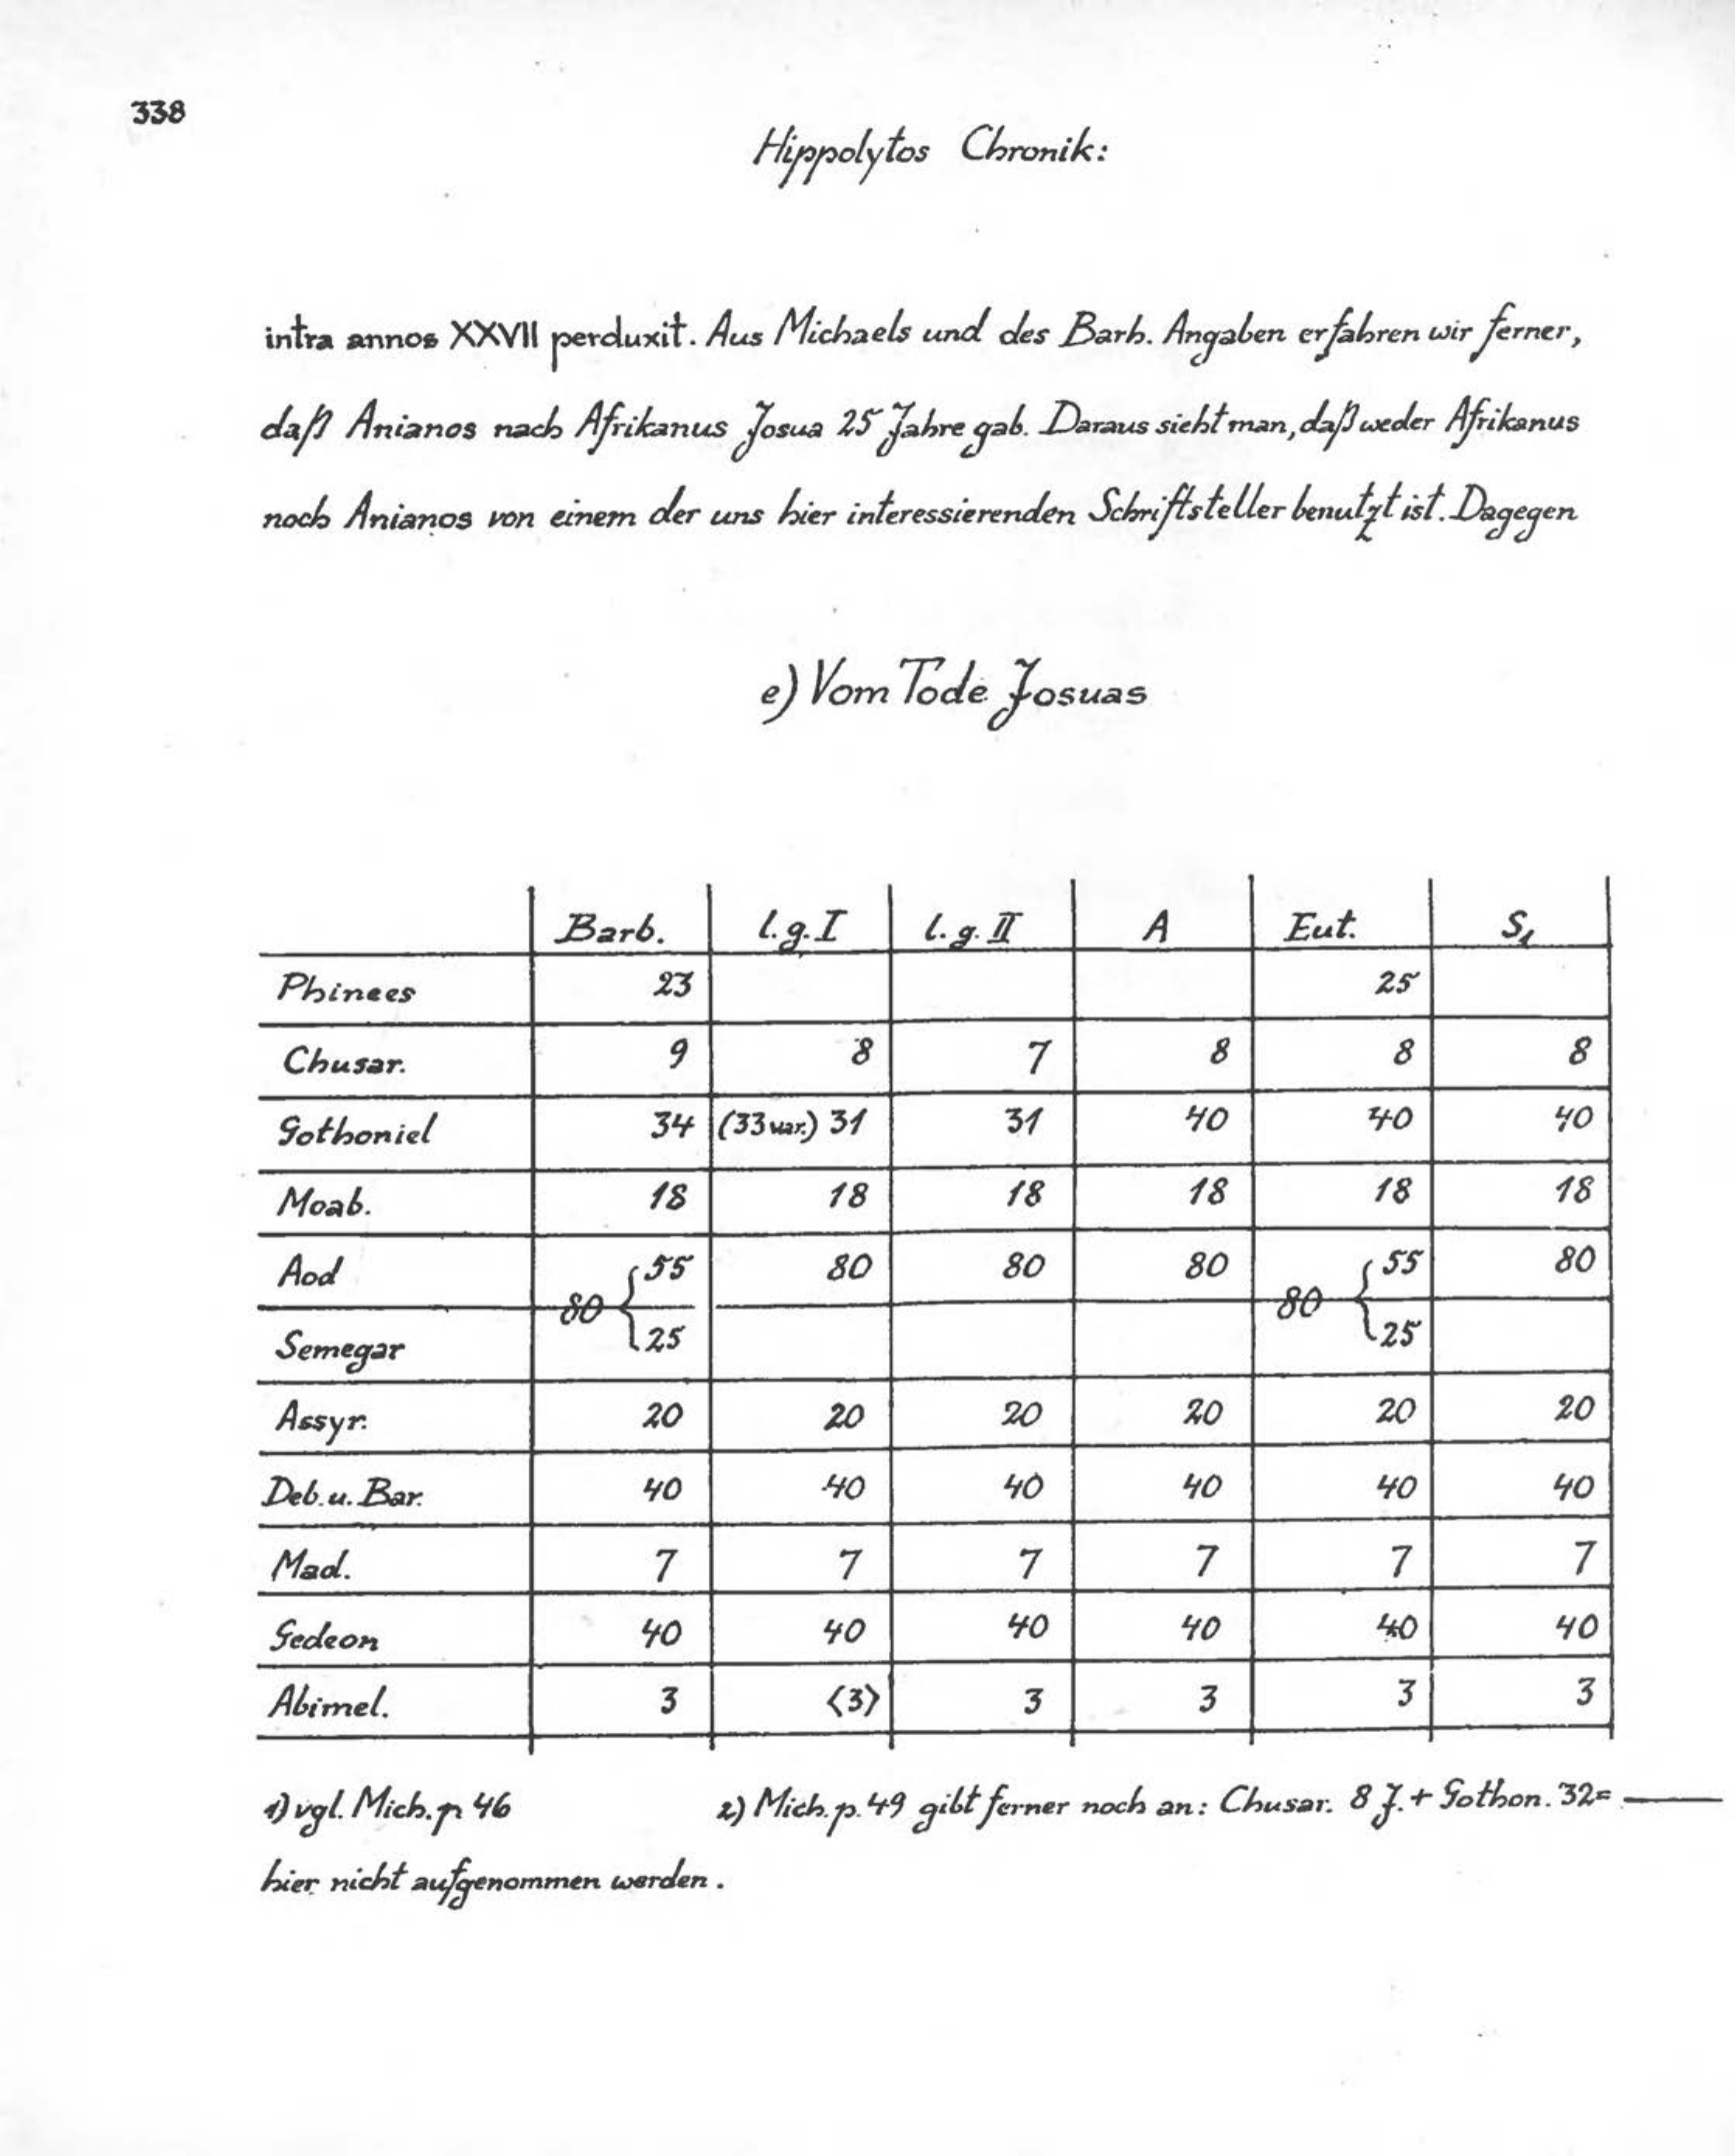 338
Hippolytos Chronik:
intra annos XXVII perduxit. Aus Michaels und des Barh. Angaben erfahren wir ferner,
daß Anianos nach Afrikanus Josua 25 Jahre gab. Daraus sieht man, daß weder Afrikanus
noch Anianos von einem der uns hier interessierenden Schriftsteller benutzt ist. Dagegen
e) Vom Tode Josuas
Barb. l.g. I l.g. II A Eut. S₁
Phinees 23 25
Chusar. 9 8 7 8 8 8
Gothoniel 34 (33 var.) 31 31 40 40 40
Moab. 18 18 18 18 18 18
Aod 55 80 80 80 55 80
80 80
Semegar 25 25
Assyr. 20 20 20 20 20 20
Deb. u. Bar. 40 40 40 40 40 40
Mad. 7 7 7 7 7 7
Gedeon 40 40 40 40 40 40
Abimel. 3 ⟨3⟩ 3 3 3 3
1) vgl. Mich. p. 46 2) Mich. p. 49 gibt ferner noch an: Chusar. 8 J. + Gothon. 32 =
hier nicht aufgenommen werden.